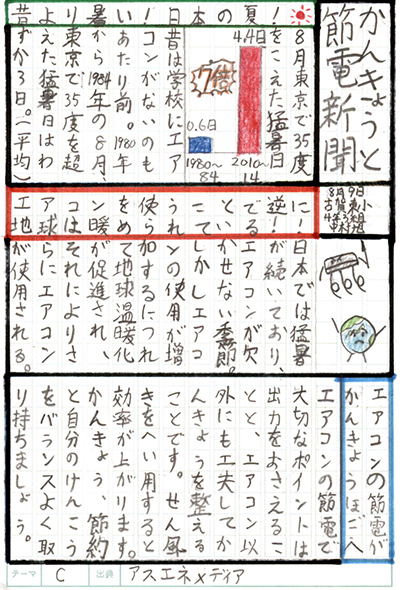 かんきょうと
節電新聞
8月9日
古賀東小
昔より暑い!日本の夏!
8月東京で35度
をこえた猛暑日
4.4日
7倍
0.6日
1980~84
2010~14
昔は学校にエア
コンがないのも
あたり前。1980年
から1984年の8月、
東京で35度を超
えた猛暑日はわ
ずか3日。(平均)
エアコンを使うことで逆に!
地球は暖められている!
日本では猛暑
が続いており、
エアコンが欠
かせない季節。
しかしエアコ
ンの使用が増
加するにつれ
て地球温暖化
が促進され、
それによりさ
らにエアコン
が使用される。
エアコンの節電が
かんきょうほごへ
エアコンの節電で
大切なポイントは
出力をおさえるこ
とと、エアコン以
外にも工夫してか
んきょうを整える
ことです。せん風
きをへい用すると
効率が上がります。
かんきょう、節約
と自分のけんこう
をバランスよく取
り持ちましょう。
テーマ C 出典 アスエネメディア